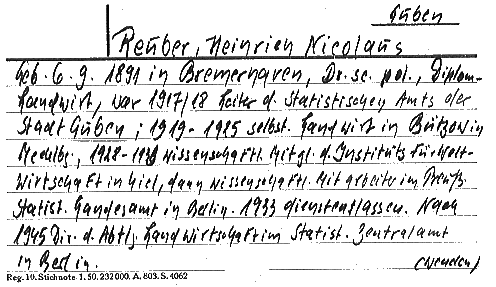 Guben
Reuber, Heinrich Nicolaus
Geb. 6. 9. 1891 in Bremerhaven, Dr. sc. pol., Diplom-
Landwirt, war 1917/18 Leiter d. Statistischen Amts der
Stadt Guben; 1919-1925 selbst. Landwirt in Bützow in
Mecklbg., 1928- wissenschaftl. Mitgl. d. Instituts für Welt-
wirtschaft in Kiel, dann wissenschaftl. Mitarbeiter im Preuß.
Statist. Landesamt in Berlin. 1933 dienstentlassen. Nach
1945 Dir. d. Abtlg. Landwirtschaft im Statist. Zentralamt
in Berlin. (wenden)
Reg. 10. Stichnote. 1. 50. 232000. A. 803. S. 4062